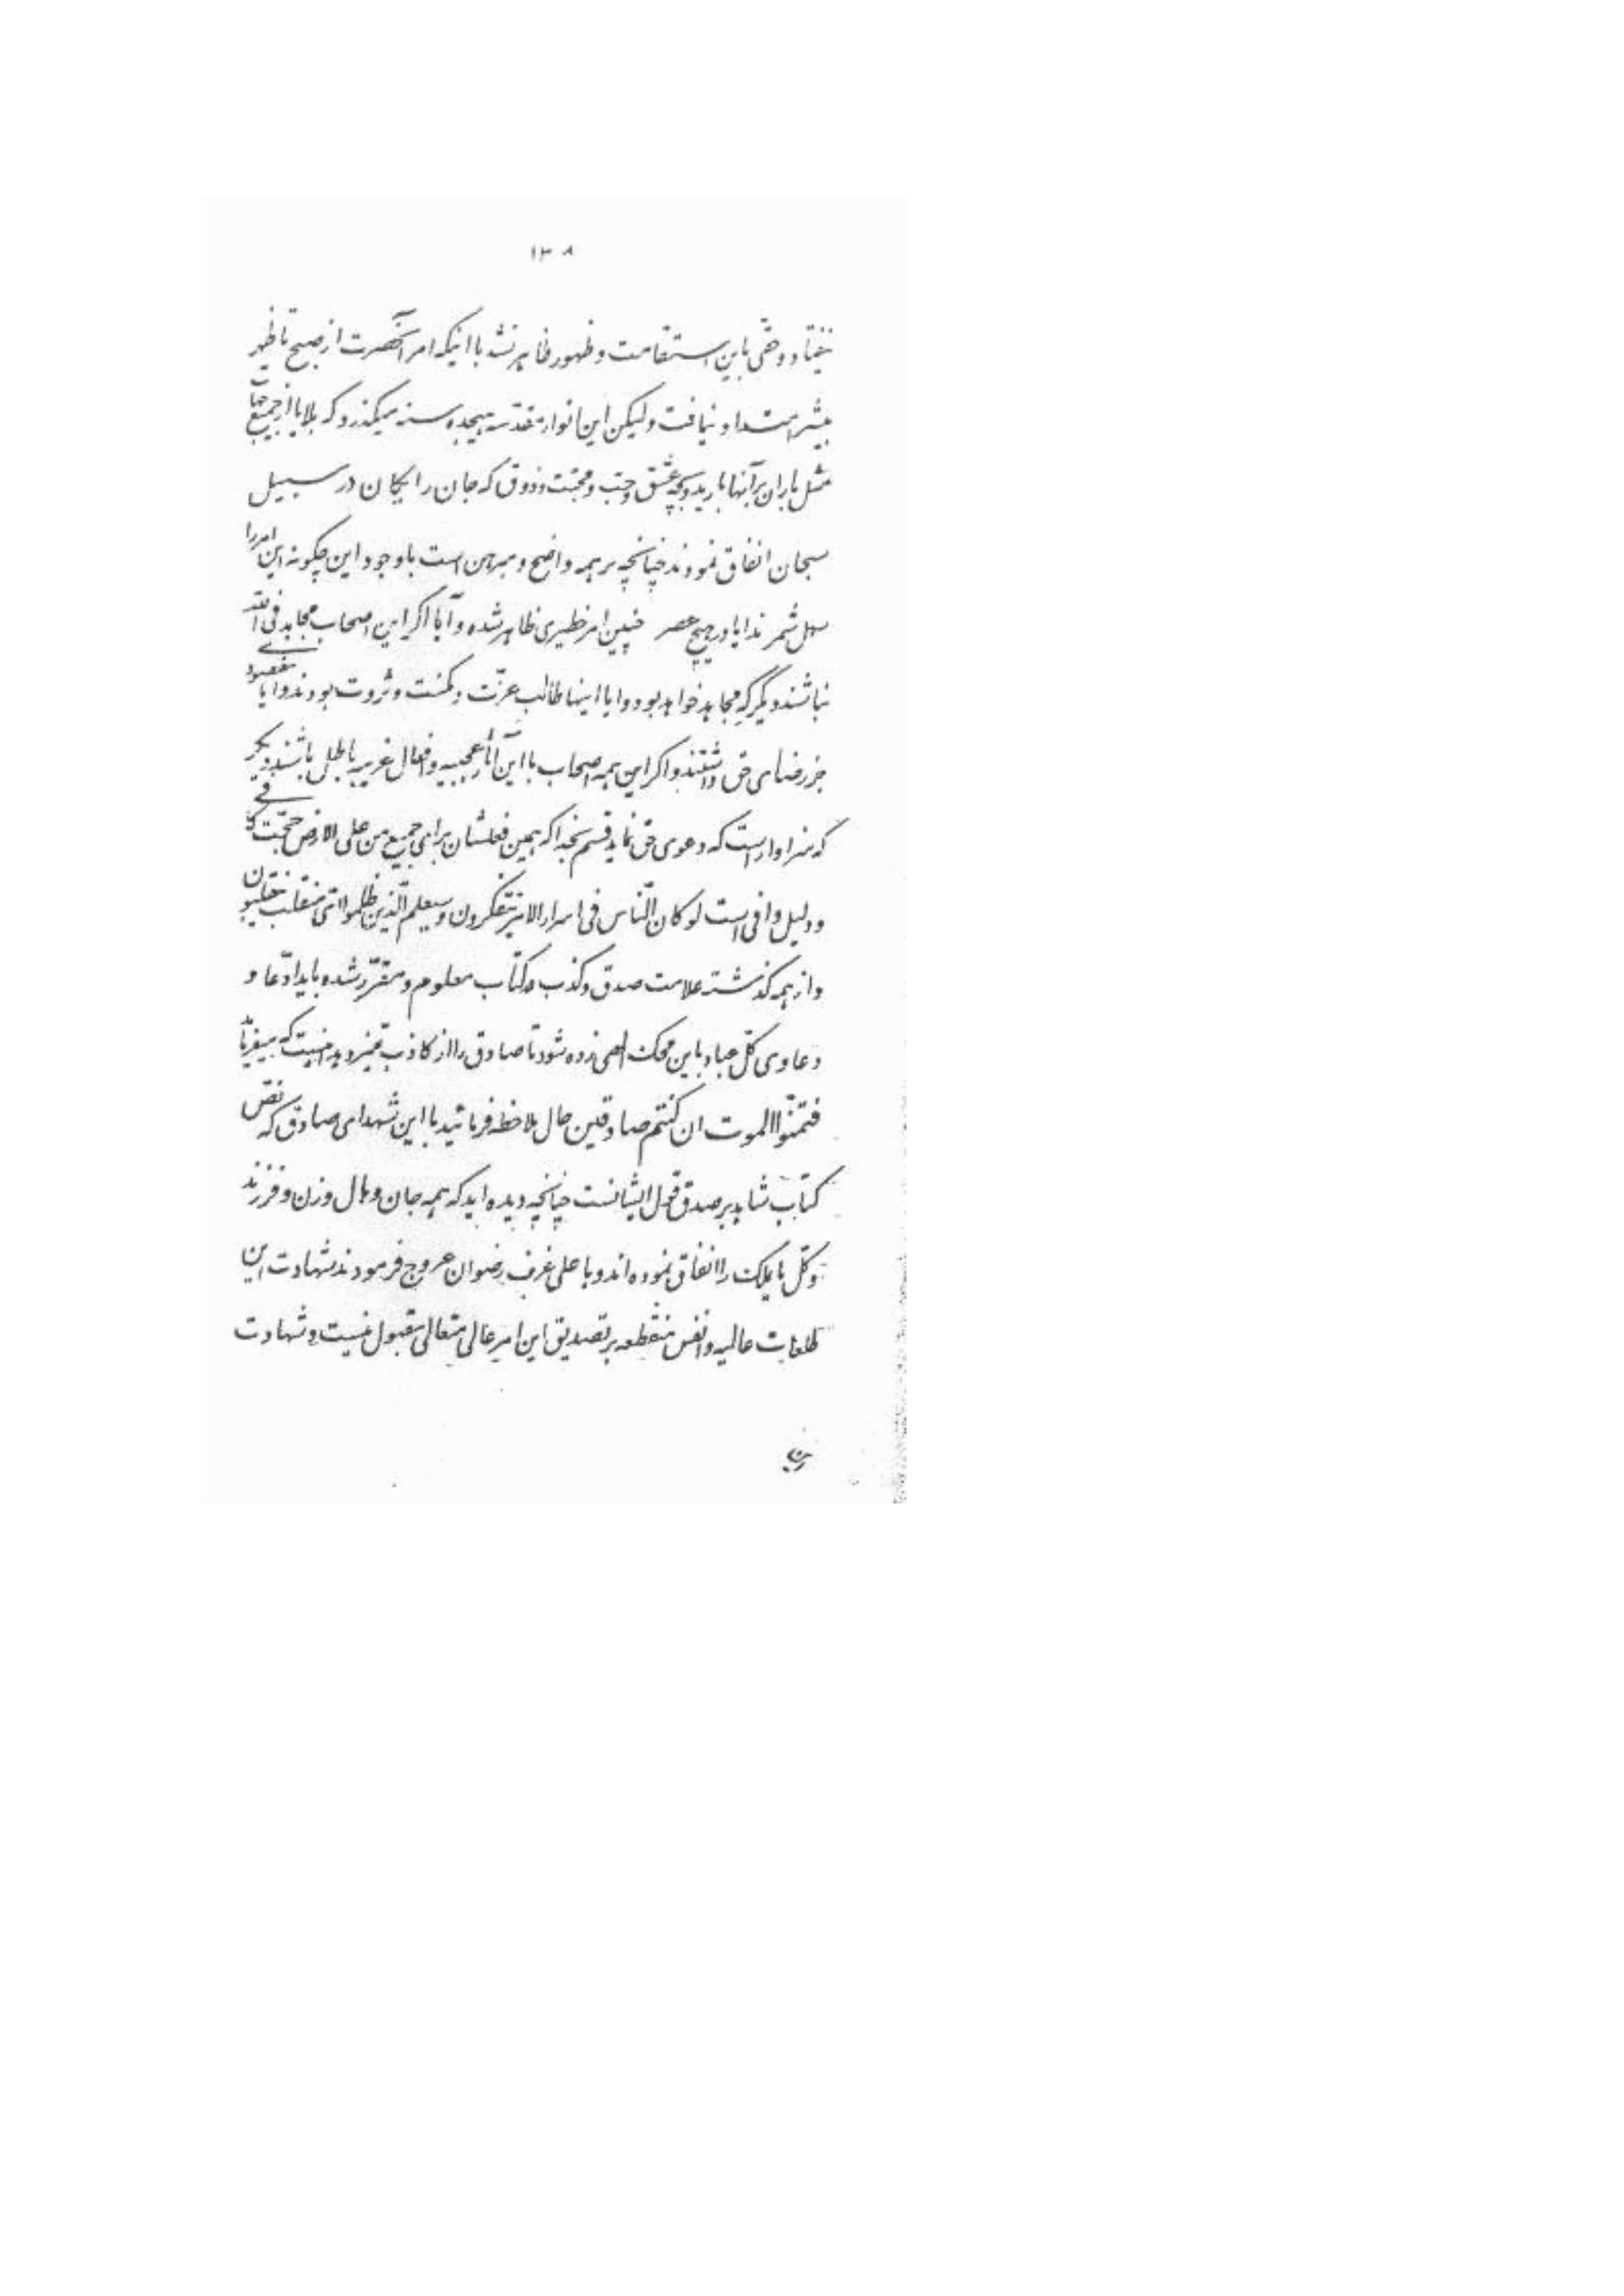 ۱۳۸
نیفتاد و حقی باین استقامت و ظهور ظاهر نشد با اینکه امر آنحضرت از صبح تا ظهر
بیشتر امتداد نیافت ولیکن این انوار مقدّسه هیجده سنه میگذرد که بلایا از جمیع جهات
مثل باران بر آنها بارید و بچه عشق و حبّ و محبّت و ذوق که جان رایگان در سبیل
سبحان انفاق نمودند چنانچه بر همه واضح و مبرهن است با وجود این چگونه این امر را
سهل شمرند آیا در هیچ عصر چنین امر خطیری ظاهر شده و آیا اگر این اصحاب مجاهد فی اللّه
نباشند دیگر که مجاهد خواهد بود و ایا اینها طالب عزّت و مکنت و ثروت بودند و ایا مقصودی
جز رضای حق داشتند و اگر این همه اصحاب با این آثار عجیبه و افعال غریبه باطل باشند دیگر
که سزاوار است که دعوی حقّ نماید قسم بخدا که همین فعلشان برای جمیع من علی الارض حجّت کافی
و دلیل وافی است لو کان النّاس فی اسرار الامر یتفکّرون و سیعلم الّذین ظلموا ایّ منقلب ینقلبون
و از همه گذشته علامت صدق و کذب در کتاب معلوم و مقرّر شده باید ادّعا و
دعاوی کلّ عباد باین محک الهی زده شود تا صادق را از کاذب تمیز دهد اینست که میفرماید
فتمنّوا الموت ان کنتم صادقین حال ملاحظه فرمائید با این شهدای صادق که نصّ
کتاب شاهد بر صدق قول ایشانست چنانچه دیده اید که همه جان و مال و زن و فرزند
و کلّ ما یملک را انفاق نموده اند و باعلی غرف رضوان عروج فرمودند شهادت این
طلعات عالیه و انفس منقطعه بر تصدیق این امر عالی متعالی مقبول نیست و شهادت